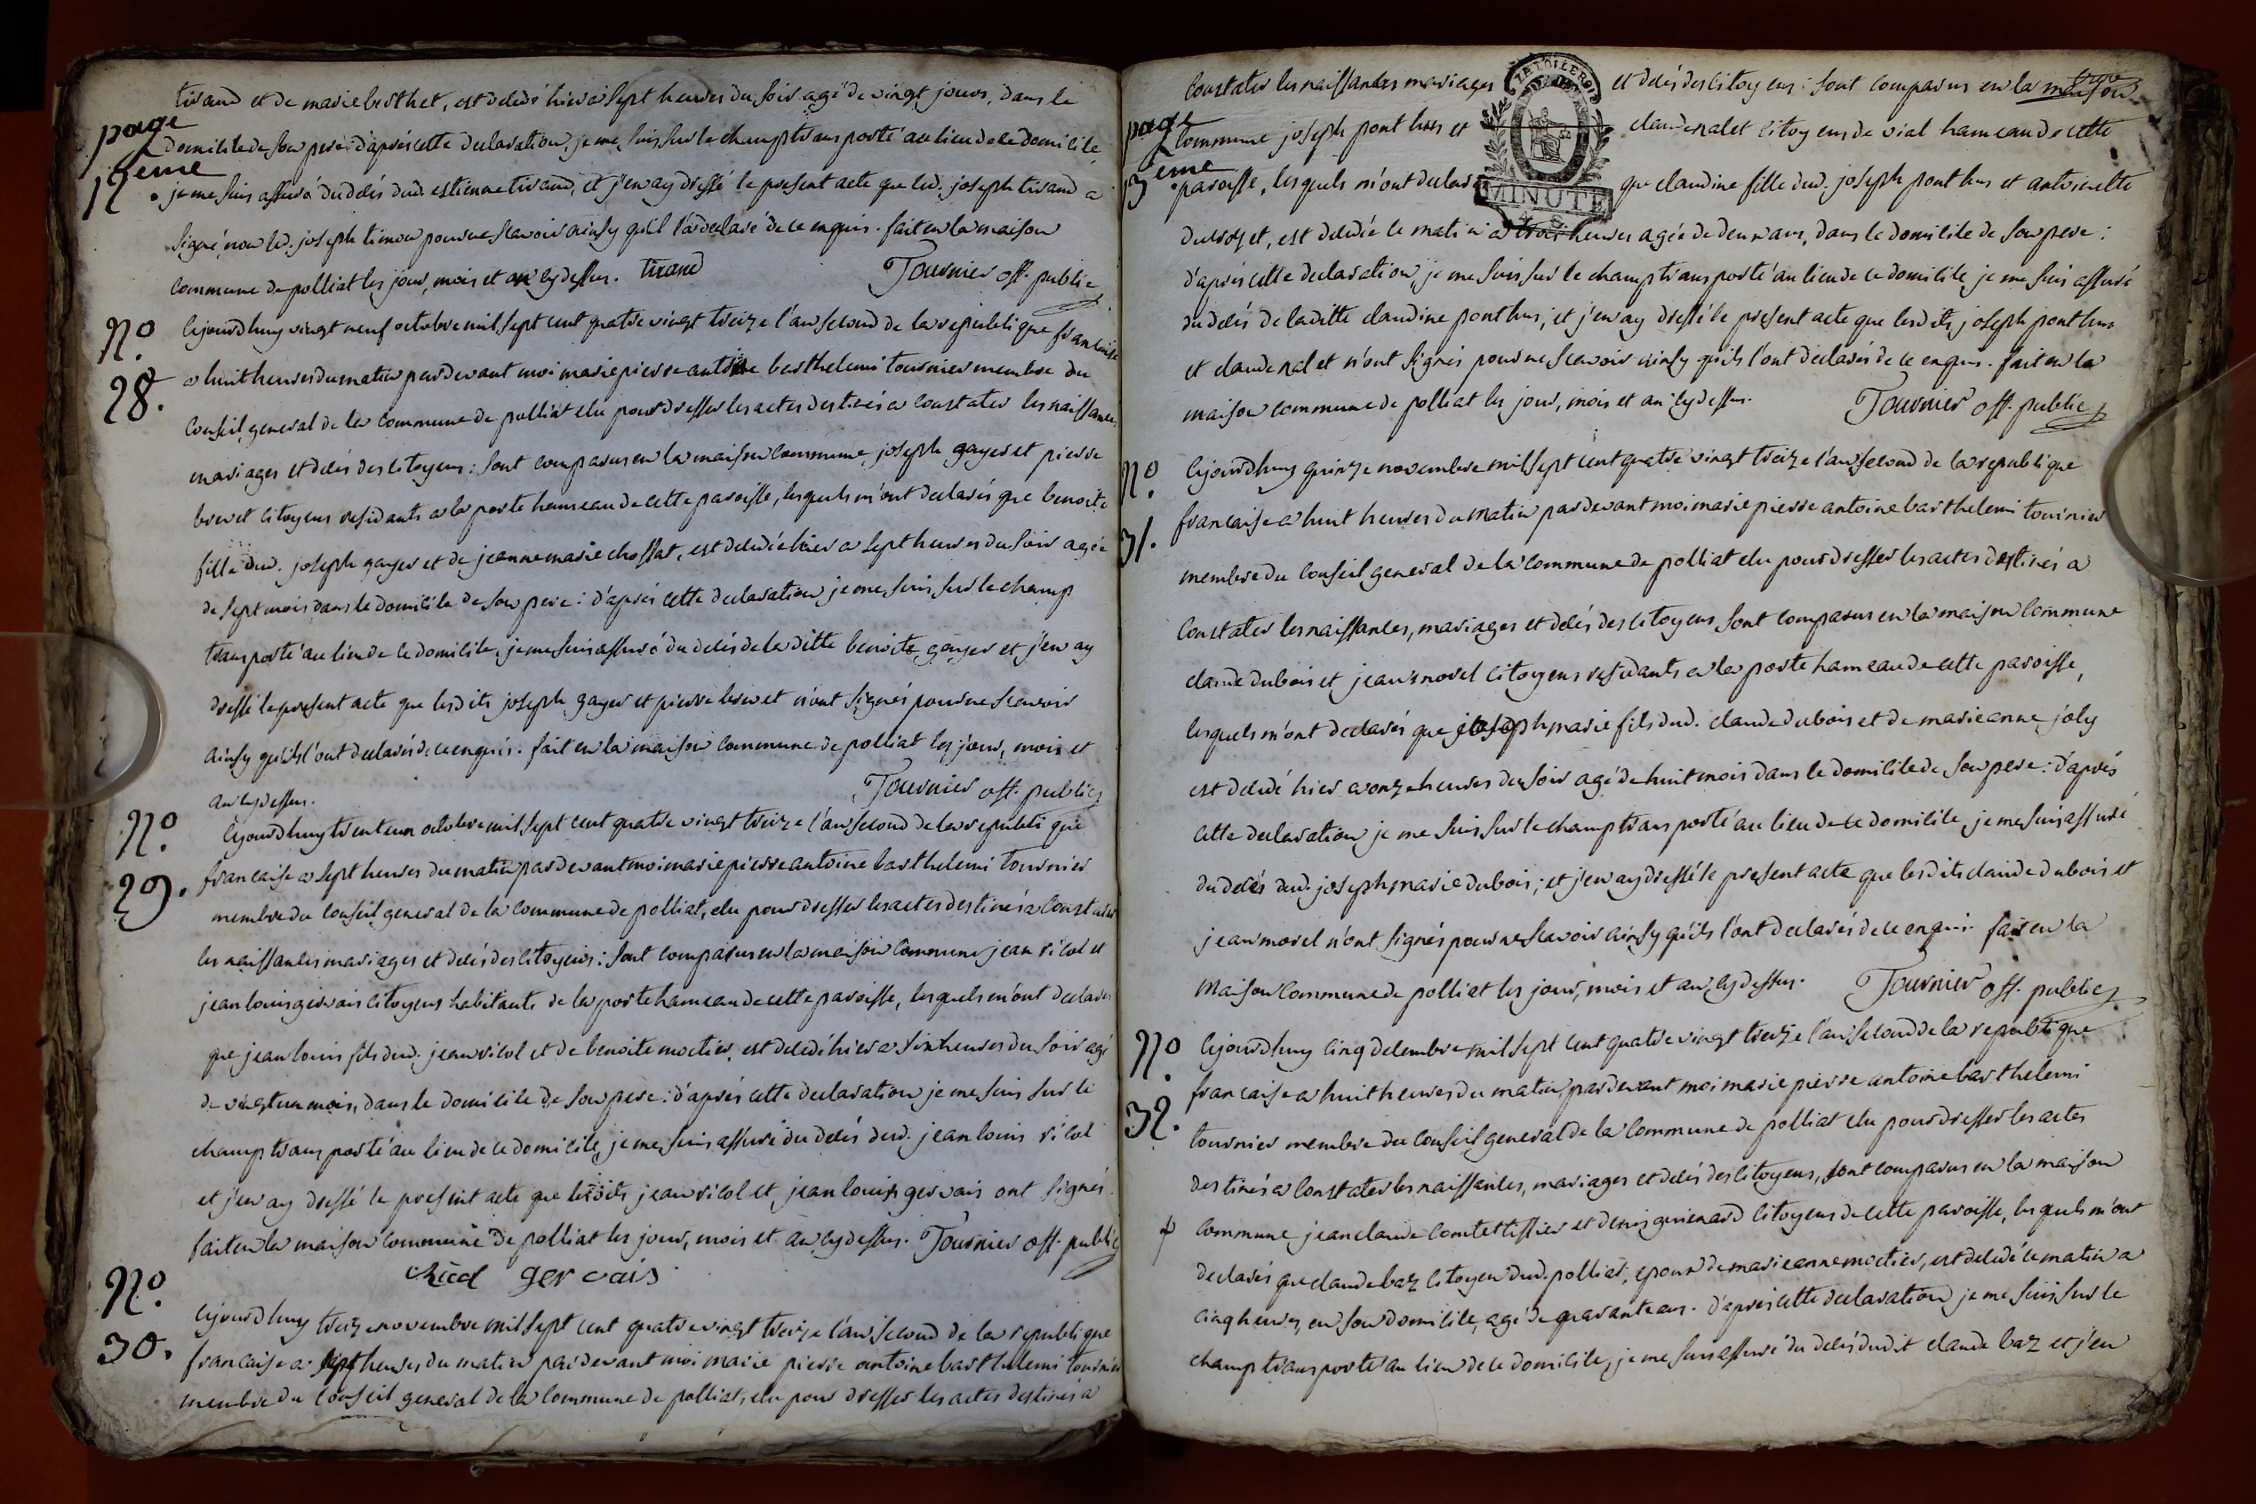 tirand et de marie berthet, est dédédé hier a sept heures du soir agé de vingt jours, dans le
page
domicile de son pere: d'aprés cette declaration, je me suis sur le champ transporté au lieu de ce domicile
12eme
je me suis assuré du dédés dud. estienne tirand, et j'en ay dressé le present acte que led. joseph tirand a
signé non led. joseph pour ne scavoir ainsy qu'il l'a declaré de ce enquis. fait en la maison
commune de polliat les jour, mois et an cy dessus. tirand Tournier off. public
N.o
28.
Cejourdhuy vingt neuf octobre mil sept cent quatre vingt treize l'an second de la republique francaise
a huit heures du matin pardevant moi marie pierre antoine barthelemi tournier membre du
conseil general de la commune de polliat elu pour dresser les actes destinés a constater les naissances
mariages et décés des citoyens: sont comparus en la maison commune, joseph gayer et pierre
brevet citoyens residants a la poste hameau de cette paroisse, lesquels m'ont declarés que benoite
fille dud. joseph gayer et de jeanne marie chossat, est décédée hier a sept heures du soir agée
de sept mois dans le domicile de son pere: d'aprés cette declaration je me suis sur le champ
transporté au lieu de ce domicile, je me suis assuré du décés de la ditte benoite gayer et j'en ay
dressé le present acte que lesdits joseph gayer et pierre brevet n'ont signés pour ne scavoir
ainsy qu'ils l'ont declarés de ce enquis. fait en la maison commune de polliat les jour, mois et
an cy dessus. Tournier off. public
N.o
29.
Cejourdhuy trente un octobre mil sept cent quatre vingt treize l'an second de la republique
francaise a sept heures du matin pardevant moi marie pierre antoine barthelemi tournier
membre du conseil general de la commune de polliat, elu pour dresser les actes destinés a constater
les naissances mariages et décés des citoyens: sont comparus en la maison commune jean ricol et
jean louis gervais citoyens habitants de la poste hameau de cette paroisse, lesquels m'ont declarés
que jean louis fils dud. jean ricol et de benoite moctier, est décédé hier a six heures du soir agé
de vingt un mois, dans le domicile de son pere: d'aprés cette declaration je me suis sur le
champ transporté au lieu de ce domicile, je me suis assuré du décés dud. jean louis ricol
et j'en ay dressé le present acte que lesdits jean ricol et jean louis gervais ont signés.
fait en la maison commune de polliat les jour, mois et an cy dessus. Tournier off. public
Ricol gervais
N.o
30.
Cejourdhuy treize novembre mil sept cent quatre vingt treize l'an second de la republique
francaise a sept heures du matin pardevant moi marie pierre antoine barthelemi tournier
membre du conseil general de la commune de polliat, elu pour dresser les actes destinés a
constater les naissances mariages et décés des citoyens: sont comparus en la maison
page
commune joseph ponthus et claude nalet citoyens de vial hameau de cette
3eme
paroisse, lesquels m'ont declarés que claudine fille dud. joseph ponthus et antoinette
MINUTE
est décédée ce matin a trois heures agée de deux ans, dans le domicile de son pere:
d'aprés cette declaration, je me suis sur le champ transporté au lieu de ce domicile, je me suis assuré
du décés de laditte claudine ponthus; et j'en ay dressé le present acte que lesdits joseph ponthus
et claude nalet n'ont signés pour ne scavoir ainsy qu'ils l'ont declarés de ce enquis. fait en la
maison commune de polliat les jour, mois et an cy dessus. Tournier off. public
N.o
31.
Cejourdhuy quinze novembre mil sept cent quatre vingt treize l'an second de la republique
francaise a huit heures du matin pardevant moi marie pierre antoine barthelemi tournier
membre du conseil general de la commune de polliat elu pour dresser les actes destinés a
constater les naissances, mariages et décés des citoyens sont comparus en la maison commune
claude dubois et jean morel citoyens residants a la poste hameau de cette paroisse,
lesquels m'ont declarés que joseph marie fils dud. claude dubois et de marie anne joly
est décédé hier a onze heures du soir agé de huit mois dans le domicile de son pere: d'aprés
cette declaration je me suis sur le champ transporté au lieu de ce domicile, je me suis assuré
du décés dud. joseph marie dubois; et j'en ay dressé le present acte que lesdits claude dubois et
jean morel n'ont signés pour ne scavoir ainsy qu'ils l'ont declarés de ce enquis. fait en la
maison commune de polliat les jour, mois et an cy dessus. Tournier off. public
N.o
32.
Cejourdhuy cinq decembre mil sept cent quatre vingt treize l'an second de la republique
francaise a huit heures du matin, pardevant moi marie pierre antoine barthelemi
tournier membre du conseil general de la commune de polliat elu pour dresser les actes
destinés a constater les naissances, mariages et décés des citoyens, sont comparus en la maison
commune jean claude comte tissier et denis guienard citoyens de cette paroisse, lesquels m'ont
declarés que claude baz citoyen dud. polliat, epoux de marie anne moctier, est décédé ce matin a
cinq heures, en son domicile, agé de quarante ans. d'aprés cette declaration je me suis sur le
champ transporté au lieu de ce domicile, je me suis assuré du décés dudit claude baz et j'en